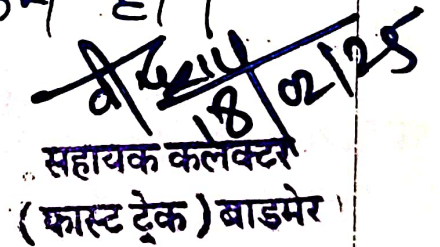 18/02/25
सहायक कलेक्टर
(फास्ट ट्रेक) बाडमेर